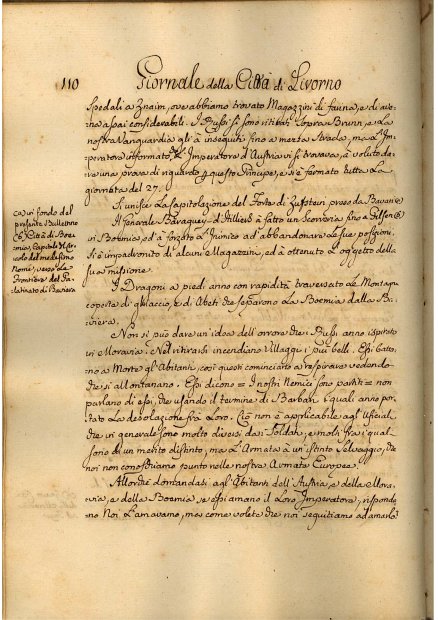 110 Giornale della Città di Livorno
Spedali a Znaim, ove abbiamo trovato Magazzini di farina, e di ave-
na assai considerabili. I Russi si sono ritirati sopra Brunn, e La
nostra Vanguardia gli à inseguiti fino a mezza strada, ma L'Im-
peratore informato, che L'Imperatore d'Austria vi si trovava, à voluto da-
re una prova di riguardo a questo Principe, e si è fermato tutta La
giornata del 27.
Si unisce La Capitolazione del Forte di Zufstein preso da Bavaresi
Il Generale Baraguey d'Hilliers à fatto un scorreria fino a Pilsen
in Boemia, ed à forzato L'Inimico ad abbandonare Le sue posizioni.
Si è impadronito di alcuni Magazzini, ed à ottenuto L'oggetto della
sua missione.
I Dragoni a piedi anno con rapidità traversato Le Montagne
coperte di ghiaccio, e di Abeti che separono La Boemia dalla Ba-
viera.
Non si può dare un'idea dell'orrore che i Russi anno ispirato
in Moravia. Nel ritirarsi incendiano Villaggi i più belli. Essi batto-
no a Morte gl'Abitanti, così questi cominciano a respirare vedendo
che si allontanano. Essi dicono = I nostri Nemici sono partiti = non
parlano di essi, che usando il termine di Barbari i quali anno por-
tato La desolazione fra Loro. Ciò non è applicabile agl'Ufficiali
che in generale sono molto diversi da i Soldati, e molti fra i quali
sono di un merito distinto, ma L'Armata à un'istinto Selvaggio, che
noi non conosciamo punto nelle nostre Armate Europee.
Allorchè domandasi agl'Abitanti dell'Austria, e della Mora-
via, e della Boemia se essi amano il Loro Imperatore, rispondo-
no Noi L'amavamo, ma come volete che noi seguitiamo ad amarlo?
ca in fondo del
presente Bullettino
Città di Boe-
mia, Capitale del Cir-
colo del medesimo
Nome, verso La
Frontiera del Pa-
latinato di Baviera